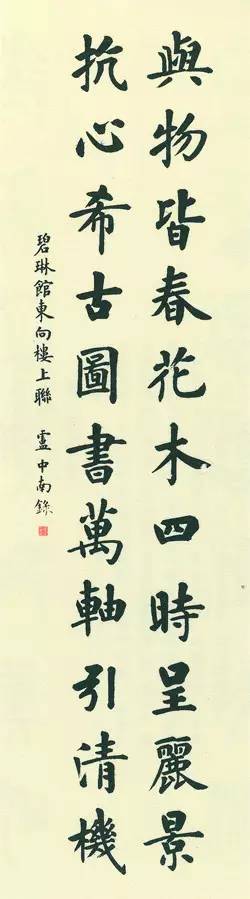 與物皆春花木四時呈麗景
抗心希古圖書萬軸引清機
碧琳館東向樓上聯 盧中南錄